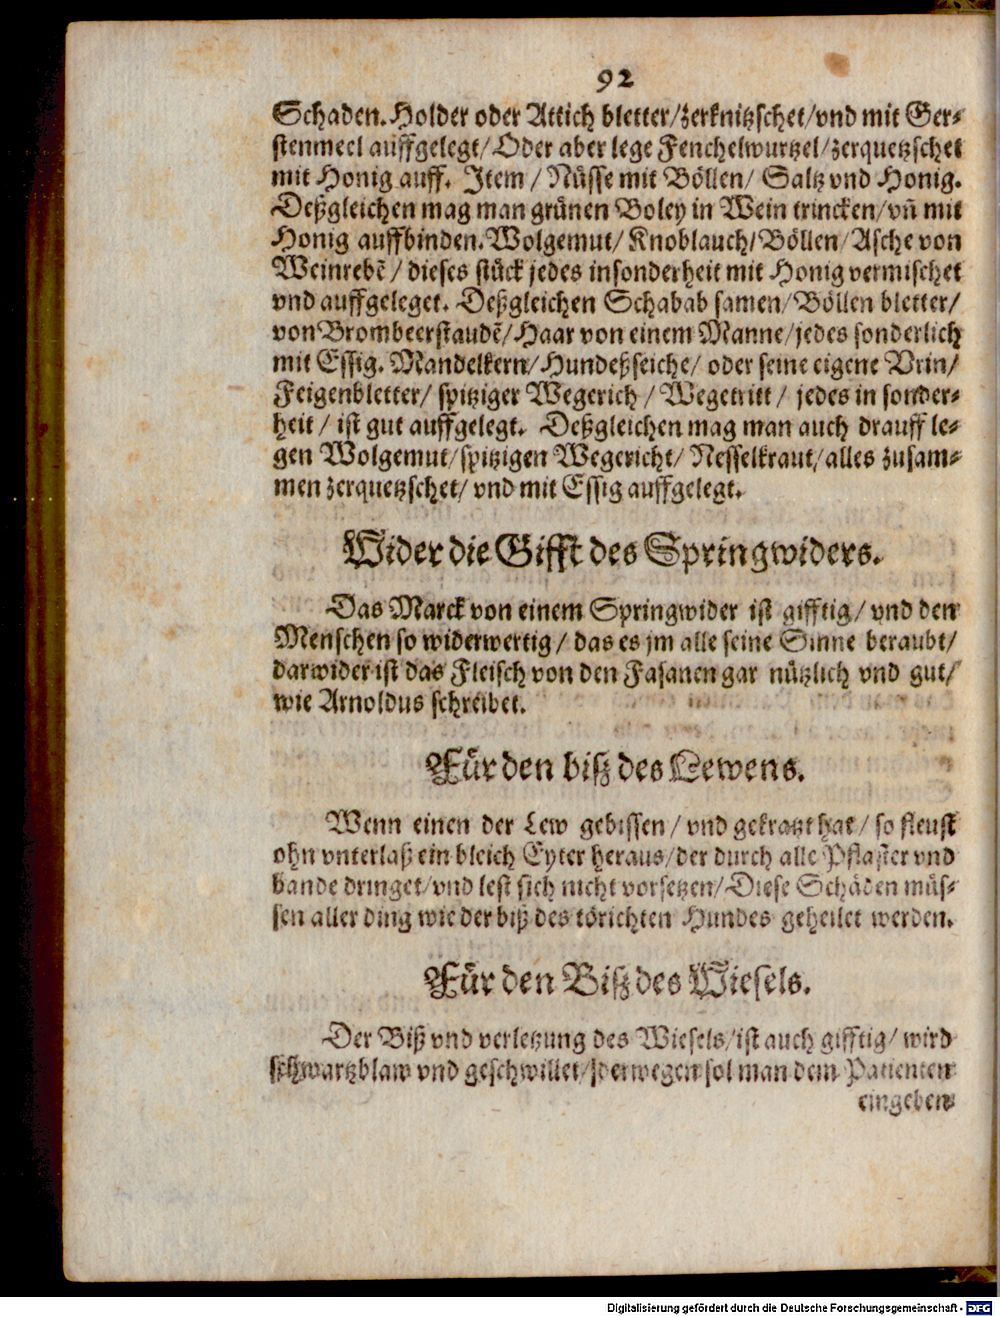 92
Schaden. Holder oder Attich bletter/zerknitzschet/vnd mit Ger-
stenmeel auffgelegt/Oder aber lege Fenchelwurtzel/zerquetzschet
mit Honig auff. Item/ Nüsse mit Böllen/ Saltz vnd Honig.
Deßgleichen mag man grünen Boley in Wein trincken/vñ mit
Honig auffbinden. Wolgemut/ Knoblauch/Böllen/Asche von
Weinrebē/ dieses stück jedes insonderheit mit Honig vermischet
vnd auffgeleget. Deßgleichen Schabab samen/Böllen bletter/
von Brombeerstaudē/Haar von einem Manne/jedes sonderlich
mit Essig. Mandelkern/Hundeßseiche/ oder seine eigene Vrin/
Feigenbletter/ spitziger Wegerich/ Wegetritt/ jedes in sonder-
heit/ ist gut auffgelegt. Deßgleichen mag man auch drauff le-
gen Wolgemut/spitzigen Wegericht/ Nesselkraut/alles zusam-
men zerquetzschet/ vnd mit Essig auffgelegt.
Wider die Gifft des Springwiders.
Das Marck von einem Springwider ist gifftig/ vnd den
Menschen so widerwertig/ das es jm alle seine Sinne beraubt/
darwider ist das Fleisch von den Fasanen gar nützlich vnd gut/
wie Arnoldus schreibet.
Für den biß des Lewens.
Wenn einen der Lew gebissen/ vnd gekratzt hat/ so fleust
ohn vnterlaß ein bleich Eyter heraus/der durch alle Pflaster vnd
bande dringet/vnd lest sich nicht vorsetzen/Diese Schäden müs-
sen aller ding wie der biß des törichten Hundes geheilet werden.
Für den Biß des Wiesels.
Der Biß vnd verletzung des Wiesels/ist auch gifftig/ wird
schwartzblaw vnd geschwillet/derwegen sol man dem Patienten
eingeben
Digitalisierung gefördert durch die Deutsche Forschungsgemeinschaft - DFG